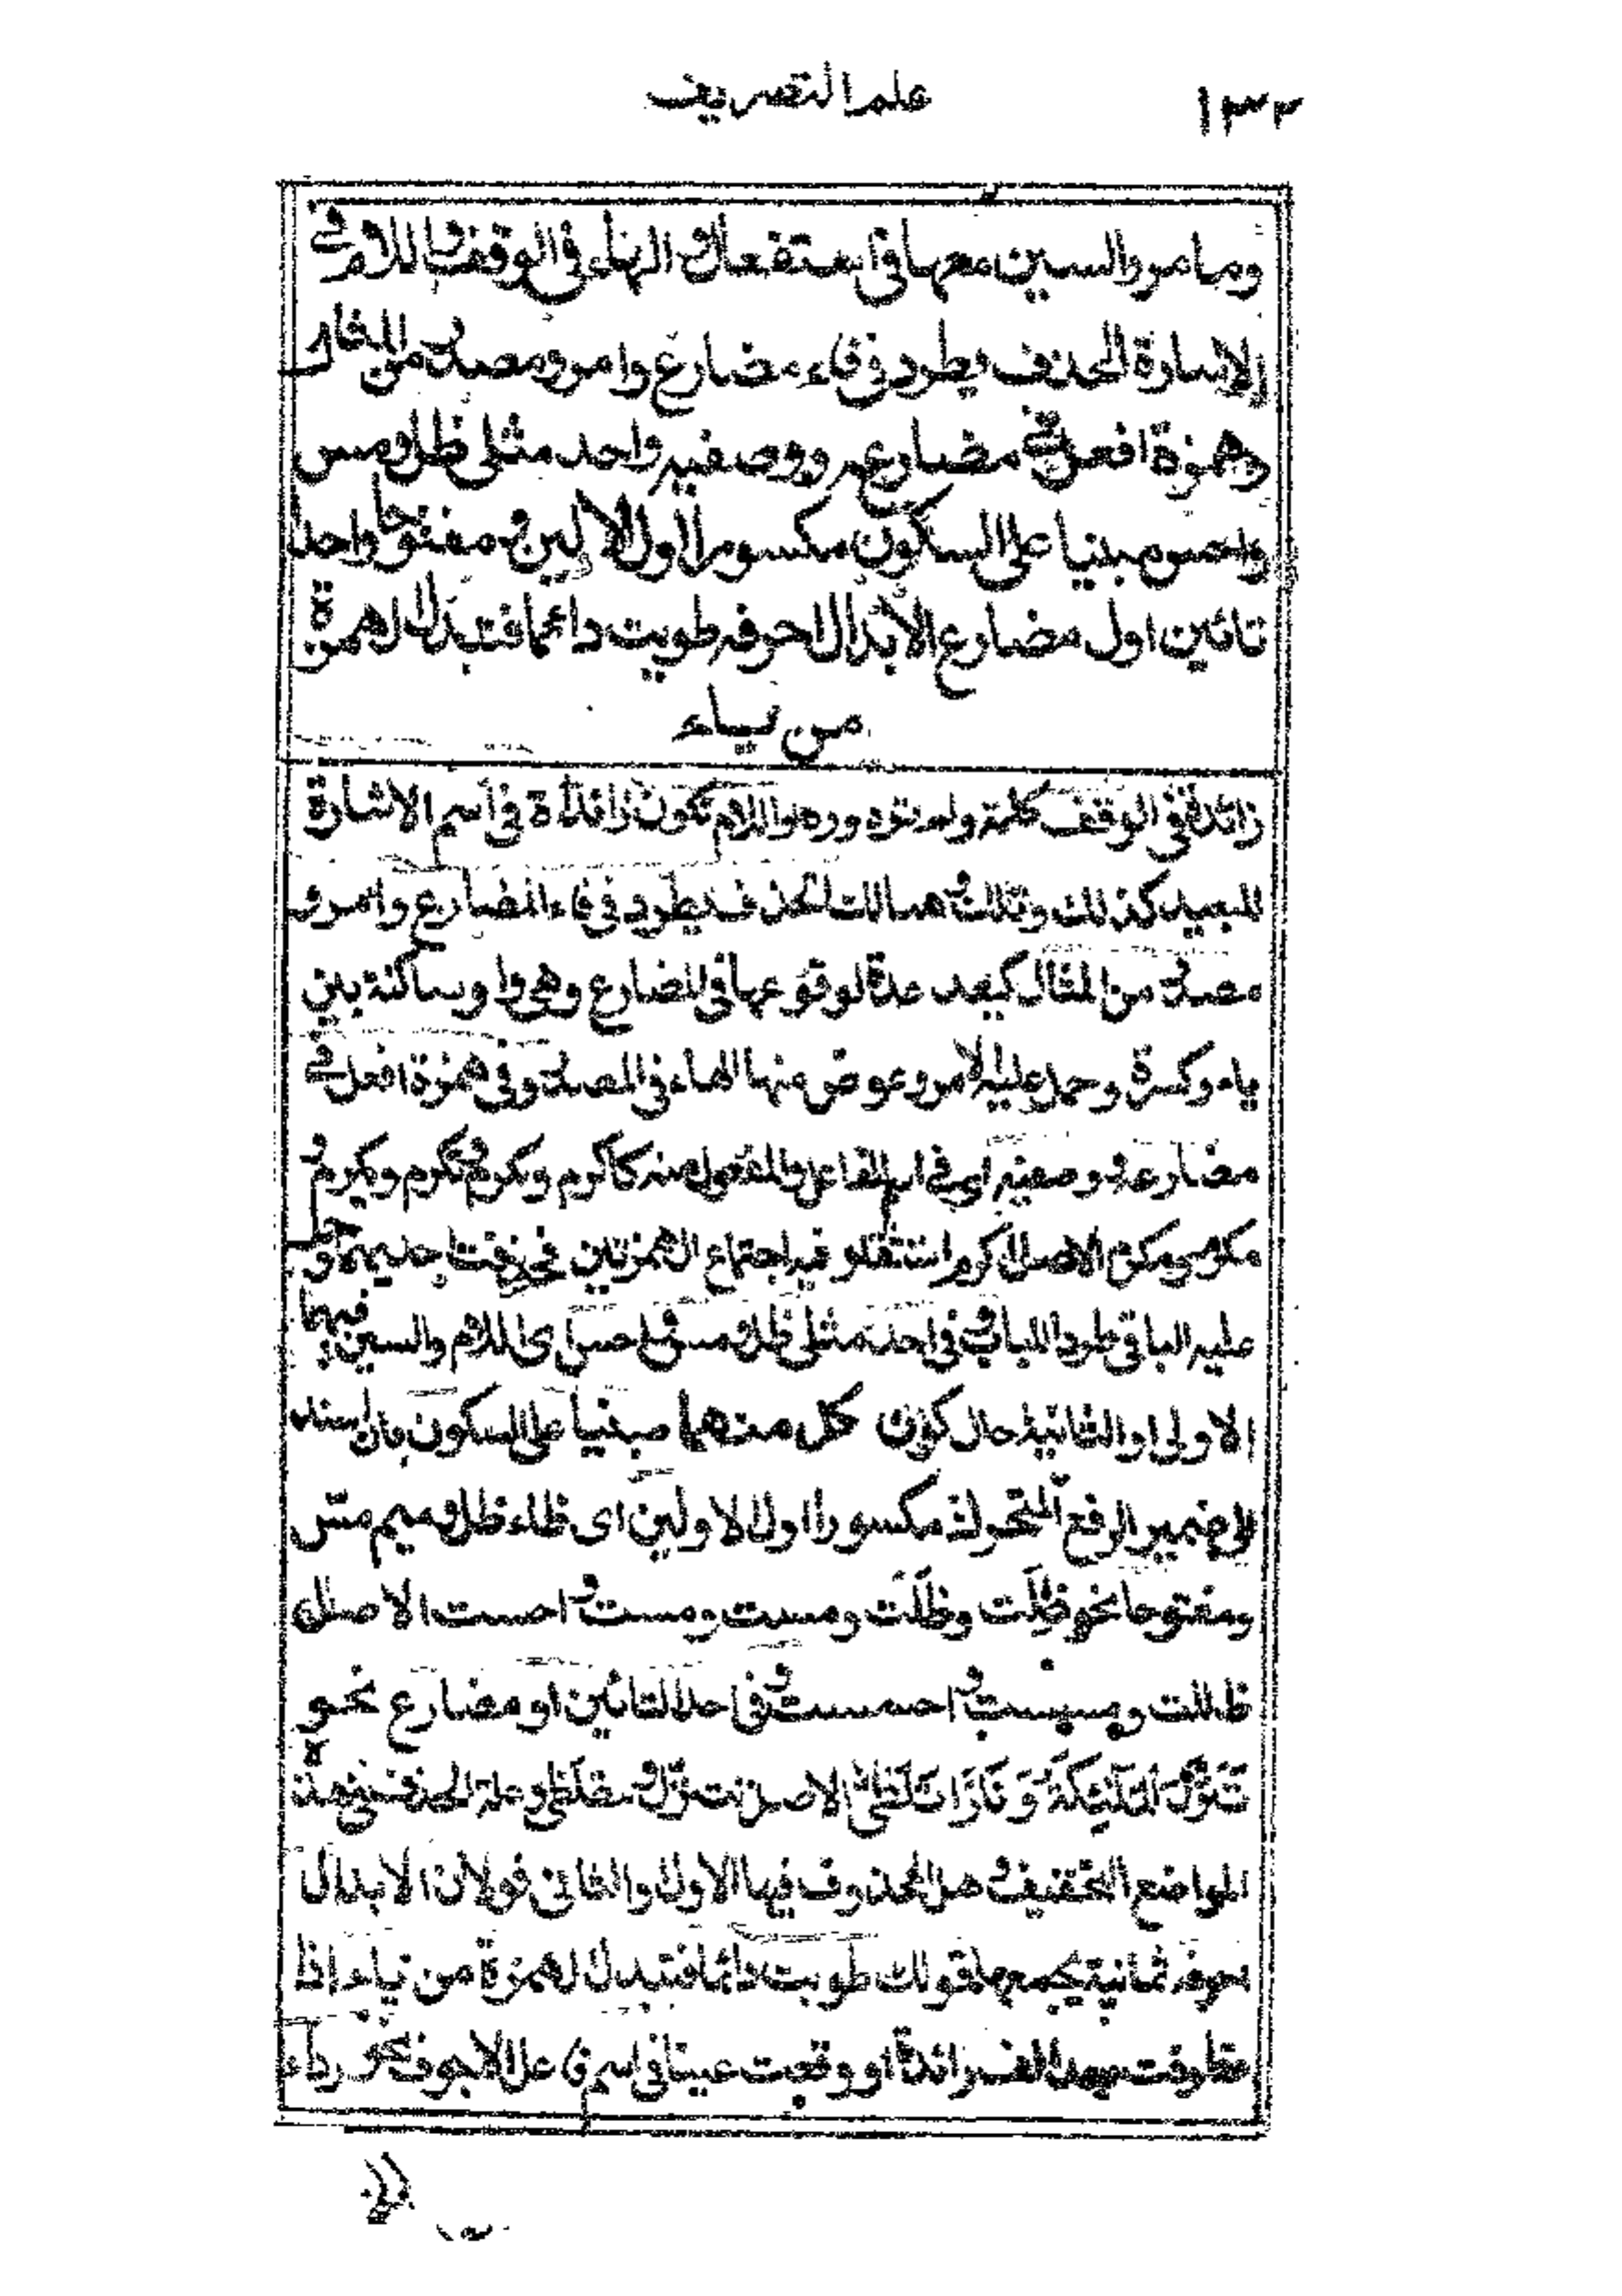 ١٣٢
علم التصريف
وما مر والسين معها في استفعال والهاء في الوقف واللام في
الاشارة الحذف يطرد في فاء مضارع وامر ومصدر من المثال
وهمزة افعل في مضارعه ووصفيه واحد مثلى ظل ومس
واحس مبنيا على السكون مكسورا اول الاولين ومفتوحا واحد
تائين اول مضارع الابدال احرفه طويت دائما فتبدل الهمزة
من ياء
زائدة في الوقف كلمة ولم تره وره واللام تكون زائدة في اسم الاشارة
للبعيد كذلك وتلك وهنالك الحذف يطرد في فاء المضارع وامر و
مصدر من المثال كيعد عدة لوقوعها في المضارع وهي واو ساكنة بين
ياء وكسرة وحمل عليه الامر وعوض منها الهاء في المصدر وفي همزة افعل في
مضارعه ووصفيه اي في اسم الفاعل والمفعول منه كاكرم ونكرم وتكرم ويكرم و
مكرم ومكرم الاصل اكرم استثقلوا فيه اجتماع الهمزتين فحذفت احديهما وحمل
عليه الباقي طردا للباب وفي احد مثلى ظل ومس واحس اى اللام والسين فيهما
الاولى او الثانية حال كون كل منهما مبنيا على السكون بان اسند
الى ضمير الرفع المتحرك مكسورا اول الاولين اى ظاء ظل وميم مس
ومفتوحا نحو ظلت وظلت ومست ومست واحست الاصل
ظللت ومسست واحسست وفي احد التائين او مضارع نحو
تنزل الملئكة و نارا تلظى الاصل تتنزل وتتلظى وعلة الحذف في هذه
المواضع التخفيف وهل المحذوف فيها الاول والثاني قولان الابدال
احرفه ثمانية يجمعها قولك طويت دائما فتبدل الهمزة من ياء اذا
تطرفت بعد الف زائدة او وقعت عينا في اسم فاعل الاجوف نحو رداء